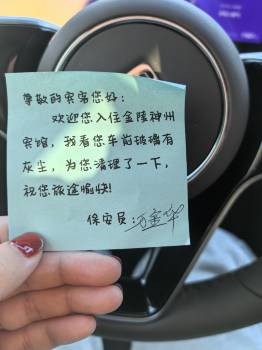 尊敬的宾客您好:
欢迎您入住金陵神州
宾馆,我看您车前玻璃有
灰尘,为您清理了一下,
祝您旅途愉快!
保安员: